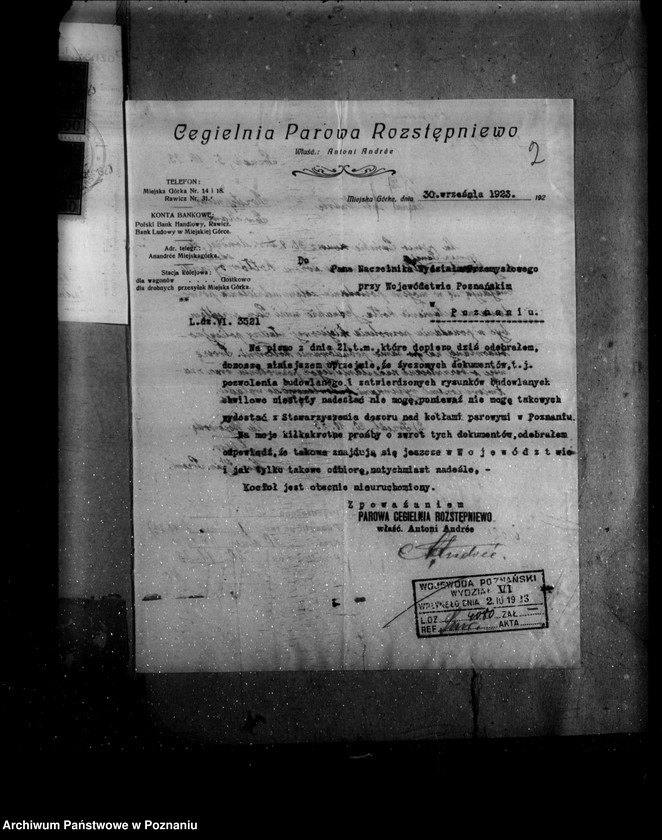 Cegielnia Parowa Rozstępniewo
Właść.: Antoni Andrée
2
TELEFON:
Miejska Górka Nr. 14 i 18.
Rawicz Nr. 31.
KONTA BANKOWE:
Polski Bank Handlowy, Rawicz.
Bank Ludowy w Miejskiej Górce.
Adr. telegr.:
Anandrée Miejskagórka.
Stacja kolejowa:
dla wagonów . . . . . Gostkowo
dla drobnych przesyłek Miejska Górka.
Miejska Górka, dnia 30.września 1923. 192
Do
Pana Naczelnika Wydziału Przemysłowego
przy Województwie Poznańskim
w
Poznaniu.
L.dz.VI. 3521
Na pismo z dnia 21.t.m., które dopiero dziś odebrałem,
donoszę niniejszem uprzejmie, że życzonych dokumentów, t.j.
pozwolenia budowlanego i zatwierdzonych rysunków budowlanych
chwilowo niestety nadesłać nie mogę, ponieważ nie mogę takowych
wydostać z Stowarzyszenia dozoru nad kotłami parowymi w Poznaniu.
Na moje kilkakrotne prośby o zwrot tych dokumentów, odebrałem
odpowiedź, że takowe znajdują się jeszcze w Województwie
i jak tylko takowe odbiorę, natychmiast nadeślę, -
Kocioł jest obecnie nieuruchomiony.
Z poważaniem
PAROWA CEGIELNIA ROZSTĘPNIEWO
właść. Antoni Andrée
Andrée.
WOJEWODA POZNAŃSKI
WYDZIAŁ VI
WPŁYNĘŁO DNIA 2.10 1923
L.DZ. 4080 ZAŁ.
REF. AKTA
Archiwum Państwowe w Poznaniu